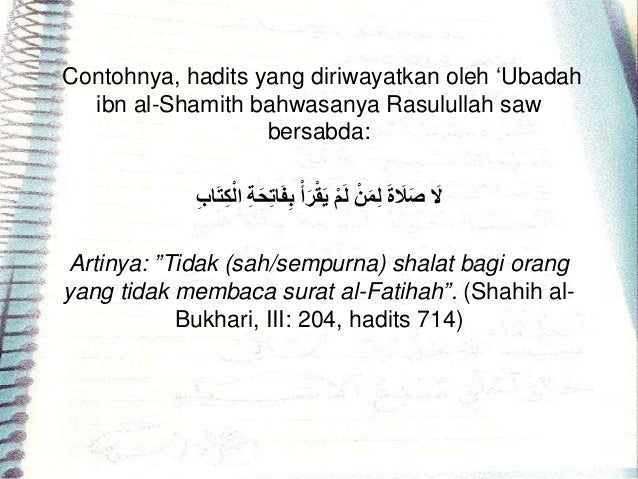 Contohnya, hadits yang diriwayatkan oleh ‘Ubadah
ibn al-Shamith bahwasanya Rasulullah saw
bersabda:
لَا صَلَاةَ لِمَنْ لَمْ يَقْرَأْ بِفَاتِحَةِ الْكِتَابِ
Artinya: ”Tidak (sah/sempurna) shalat bagi orang
yang tidak membaca surat al-Fatihah”. (Shahih al-
Bukhari, III: 204, hadits 714)